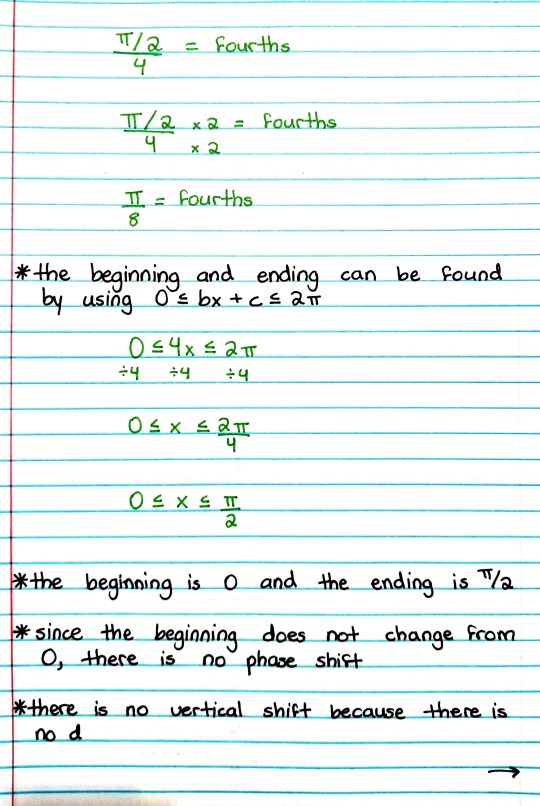 π/2 = fourths
4
π/2 × 2 = fourths
4 × 2
π = fourths
8
*the beginning and ending can be found
by using 0 ≤ bx + c ≤ 2π
0 ≤ 4x ≤ 2π
÷4 ÷4 ÷4
0 ≤ x ≤ 2π
4
0 ≤ x ≤ π
2
*the beginning is 0 and the ending is π/2
*since the beginning does not change from
0, there is no phase shift
*there is no vertical shift because there is
no d
→